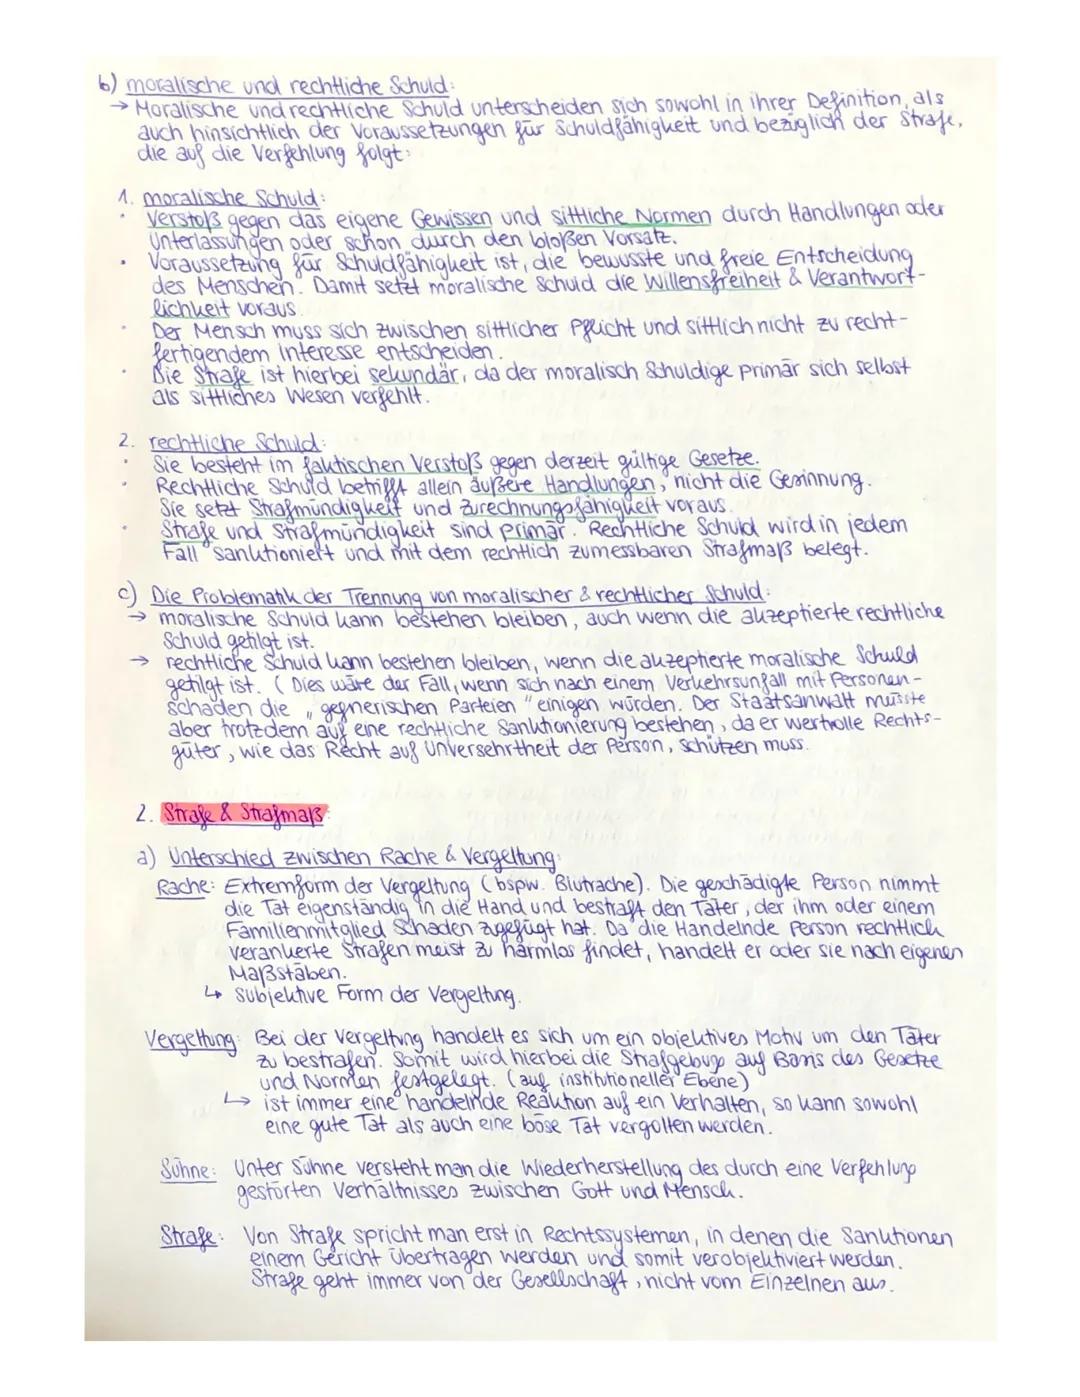 b) moralische und rechtliche Schuld:
→ Moralische und rechtliche Schuld unterscheiden sich sowohl in ihrer Definition, als
auch hinsichtlich der Voraussetzungen für Schuldfähigkeit und bezüglich der Strafe,
die auf die Verfehlung folgt:
1. moralische Schuld:
• Verstoß gegen das eigene Gewissen und sittliche Normen durch Handlungen oder
Unterlassungen oder schon durch den bloßen Vorsatz.
• Voraussetzung für Schuldfähigkeit ist, die bewusste und freie Entscheidung
des Menschen. Damit setzt moralische Schuld die Willensfreiheit & Verantwort-
lichkeit voraus.
• Der Mensch muss sich zwischen sittlicher Pflicht und sittlich nicht zu recht-
fertigendem Interesse entscheiden.
• Die Strafe ist hierbei sekundär, da der moralisch Schuldige primär sich selbst
als sittliches Wesen verfehlt.
2. rechtliche Schuld:
• Sie besteht im faktischen Verstoß gegen derzeit gültige Gesetze.
• Rechtliche Schuld betrifft allein äußere Handlungen, nicht die Gesinnung.
• Sie setzt Strafmündigkeit und Zurechnungsfähigkeit voraus.
• Strafe und Strafmündigkeit sind primär. Rechtliche Schuld wird in jedem
Fall sanktioniert und mit dem rechtlich zumessbaren Strafmaß belegt.
c) Die Problematik der Trennung von moralischer & rechtlicher Schuld:
→ moralische Schuld kann bestehen bleiben, auch wenn die akzeptierte rechtliche
Schuld getilgt ist.
→ rechtliche Schuld kann bestehen bleiben, wenn die akzeptierte moralische Schuld
getilgt ist. (Dies wäre der Fall, wenn sich nach einem Verkehrsunfall mit Personen-
schaden die „gegnerischen Parteien" einigen würden. Der Staatsanwalt müsste
aber trotzdem auf eine rechtliche Sanktionierung bestehen, da er wertvolle Rechts-
güter, wie das Recht auf Unversehrtheit der Person, schützen muss.
2. Strafe & Strafmaß:
a) Unterschied zwischen Rache & Vergeltung:
Rache: Extremform der Vergeltung (bspw. Blutrache). Die geschädigte Person nimmt
die Tat eigenständig in die Hand und bestraft den Täter, der ihm oder einem
Familienmitglied Schaden zugefügt hat. Da die Handelnde Person rechtlich
verankerte Strafen meist zu harmlos findet, handelt er oder sie nach eigenen
Maßstäben.
↳ subjektive Form der Vergeltung.
Vergeltung: Bei der Vergeltung handelt es sich um ein objektives Motiv um den Täter
zu bestrafen. Somit wird hierbei die Strafgebung auf Basis des Gesetze
und Normen festgelegt. (auf institutioneller Ebene)
↳ ist immer eine handelnde Reaktion auf ein Verhalten, so kann sowohl
eine gute Tat als auch eine böse Tat vergolten werden.
Sühne: Unter Sühne versteht man die Wiederherstellung des durch eine Verfehlung
gestörten Verhältnisses zwischen Gott und Mensch.
Strafe: Von Strafe spricht man erst in Rechtssystemen, in denen die Sanktionen
einem Gericht übertragen werden und somit verobjektiviert werden.
Strafe geht immer von der Gesellschaft, nicht vom Einzelnen aus.